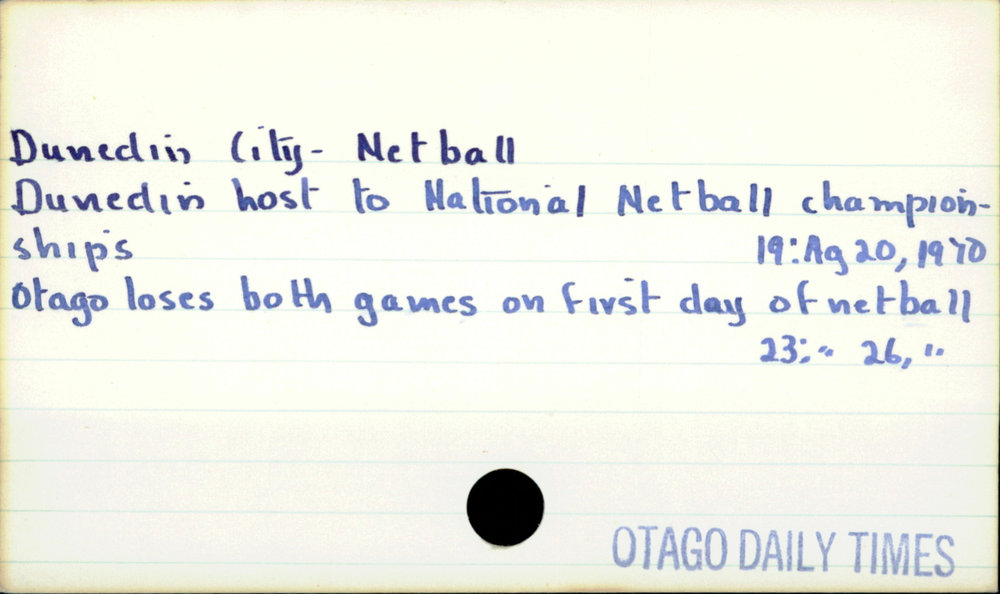 Dunedin City- Netball
Dunedin host to National Netball champion-
ships 19:Ag 20, 1970
Otago loses both games on first day of netball
23: " 26, "
OTAGO DAILY TIMES